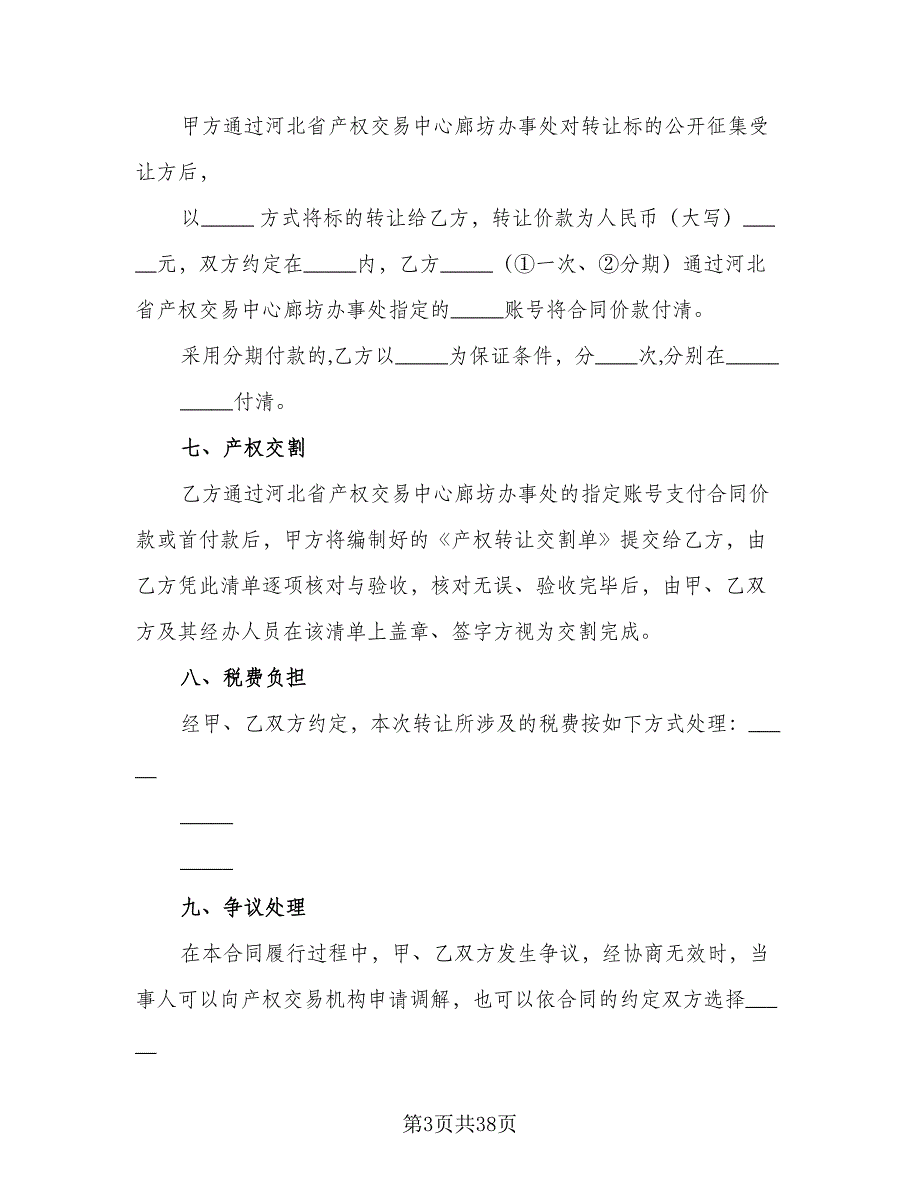 甲方通过河北省产权交易中心廊坊办事处对转让标的公开征集受
让方后，
以_____ 方式将标的转让给乙方，转让价款为人民币（大写）___
__元，双方约定在_____内，乙方_____（①一次、②分期）通过河北
省产权交易中心廊坊办事处指定的_____账号将合同价款付清。
采用分期付款的,乙方以_____为保证条件，分____次,分别在_____
_____付清。
七、产权交割
乙方通过河北省产权交易中心廊坊办事处的指定账号支付合同价
款或首付款后，甲方将编制好的《产权转让交割单》提交给乙方，由
乙方凭此清单逐项核对与验收，核对无误、验收完毕后，由甲、乙双
方及其经办人员在该清单上盖章、签字方视为交割完成。
八、税费负担
经甲、乙双方约定，本次转让所涉及的税费按如下方式处理：___
__
_____
_____
九、争议处理
在本合同履行过程中，甲、乙双方发生争议，经协商无效时，当
事人可以向产权交易机构申请调解，也可以依合同的约定双方选择___
__
第3页共38页